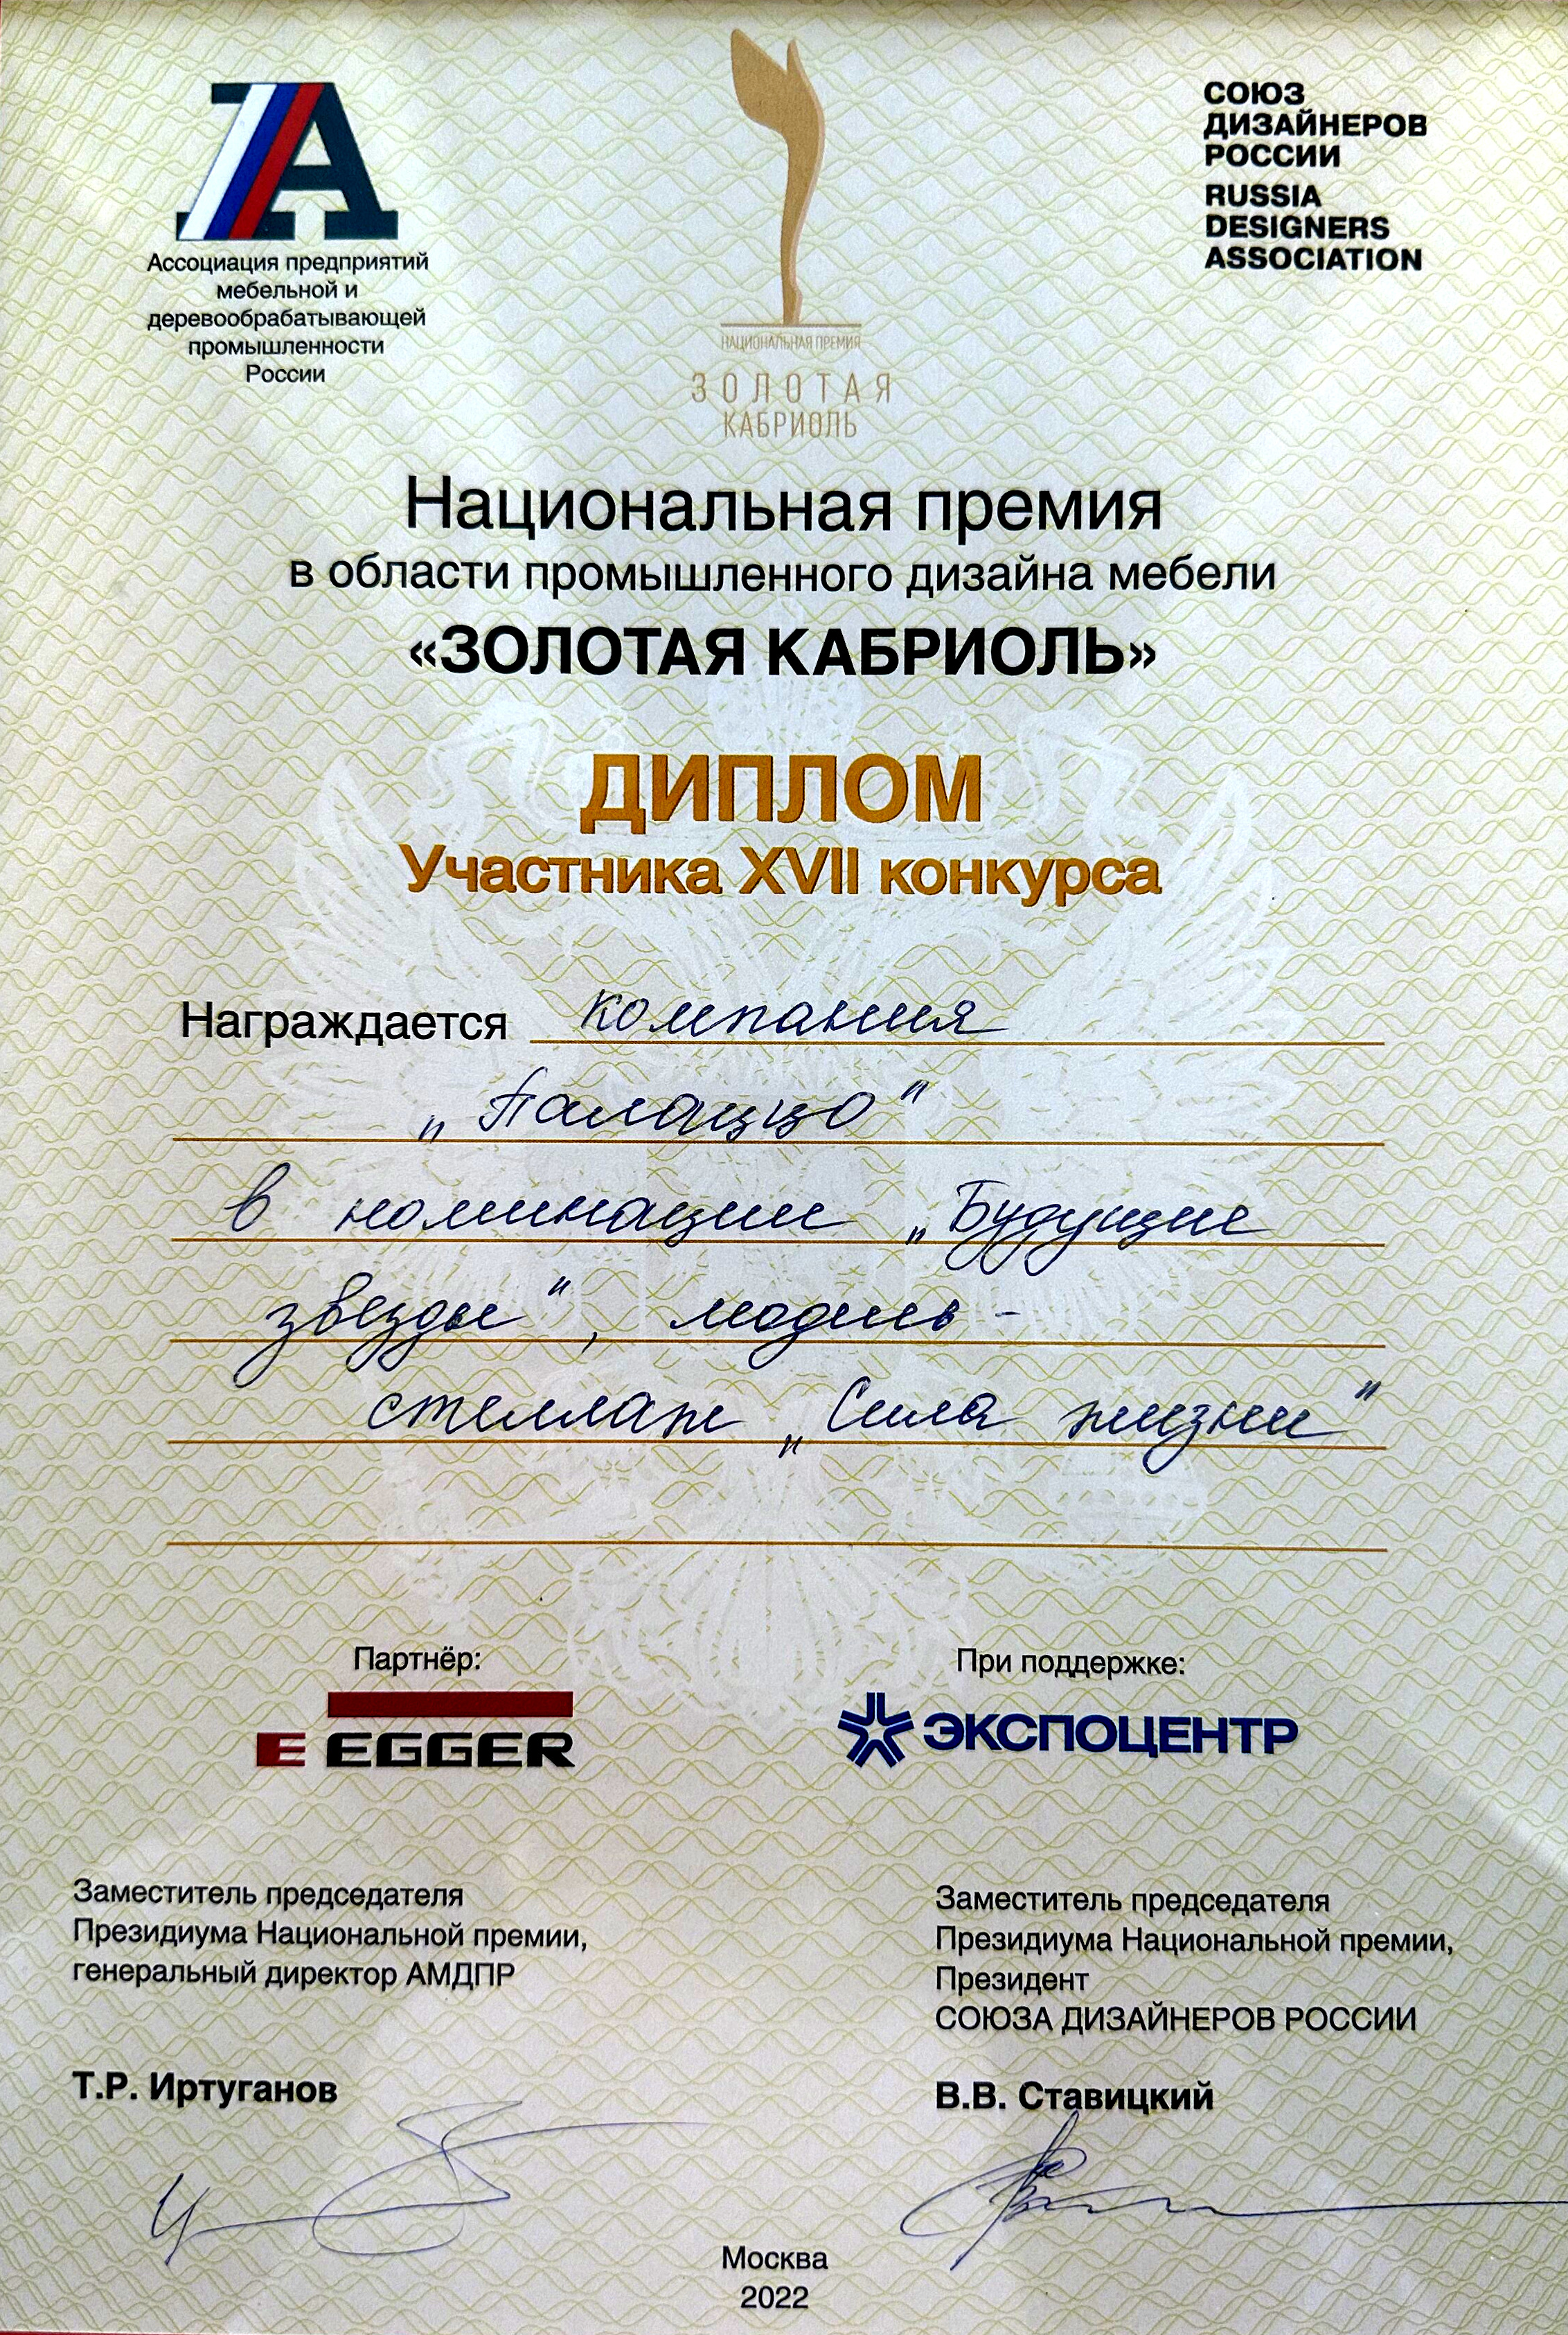 Ассоциация предприятий
мебельной и
деревообрабатывающей
промышленности
России
НАЦИОНАЛЬНАЯ ПРЕМИЯ
ЗОЛОТАЯ
КАБРИОЛЬ
СОЮЗ
ДИЗАЙНЕРОВ
РОССИИ
RUSSIA
DESIGNERS
ASSOCIATION
Национальная премия
в области промышленного дизайна мебели
«ЗОЛОТАЯ КАБРИОЛЬ»
ДИПЛОМ
Участника XVII конкурса
Награждается компания
„Палаццо"
в номинации „Будущие
звезды", модель -
стеллаж „Сила жизни"
Партнёр:
E EGGER
При поддержке:
ЭКСПОЦЕНТР
Заместитель председателя
Президиума Национальной премии,
генеральный директор АМДПР
Т.Р. Иртуганов
Заместитель председателя
Президиума Национальной премии,
Президент
СОЮЗА ДИЗАЙНЕРОВ РОССИИ
В.В. Ставицкий
Москва
2022